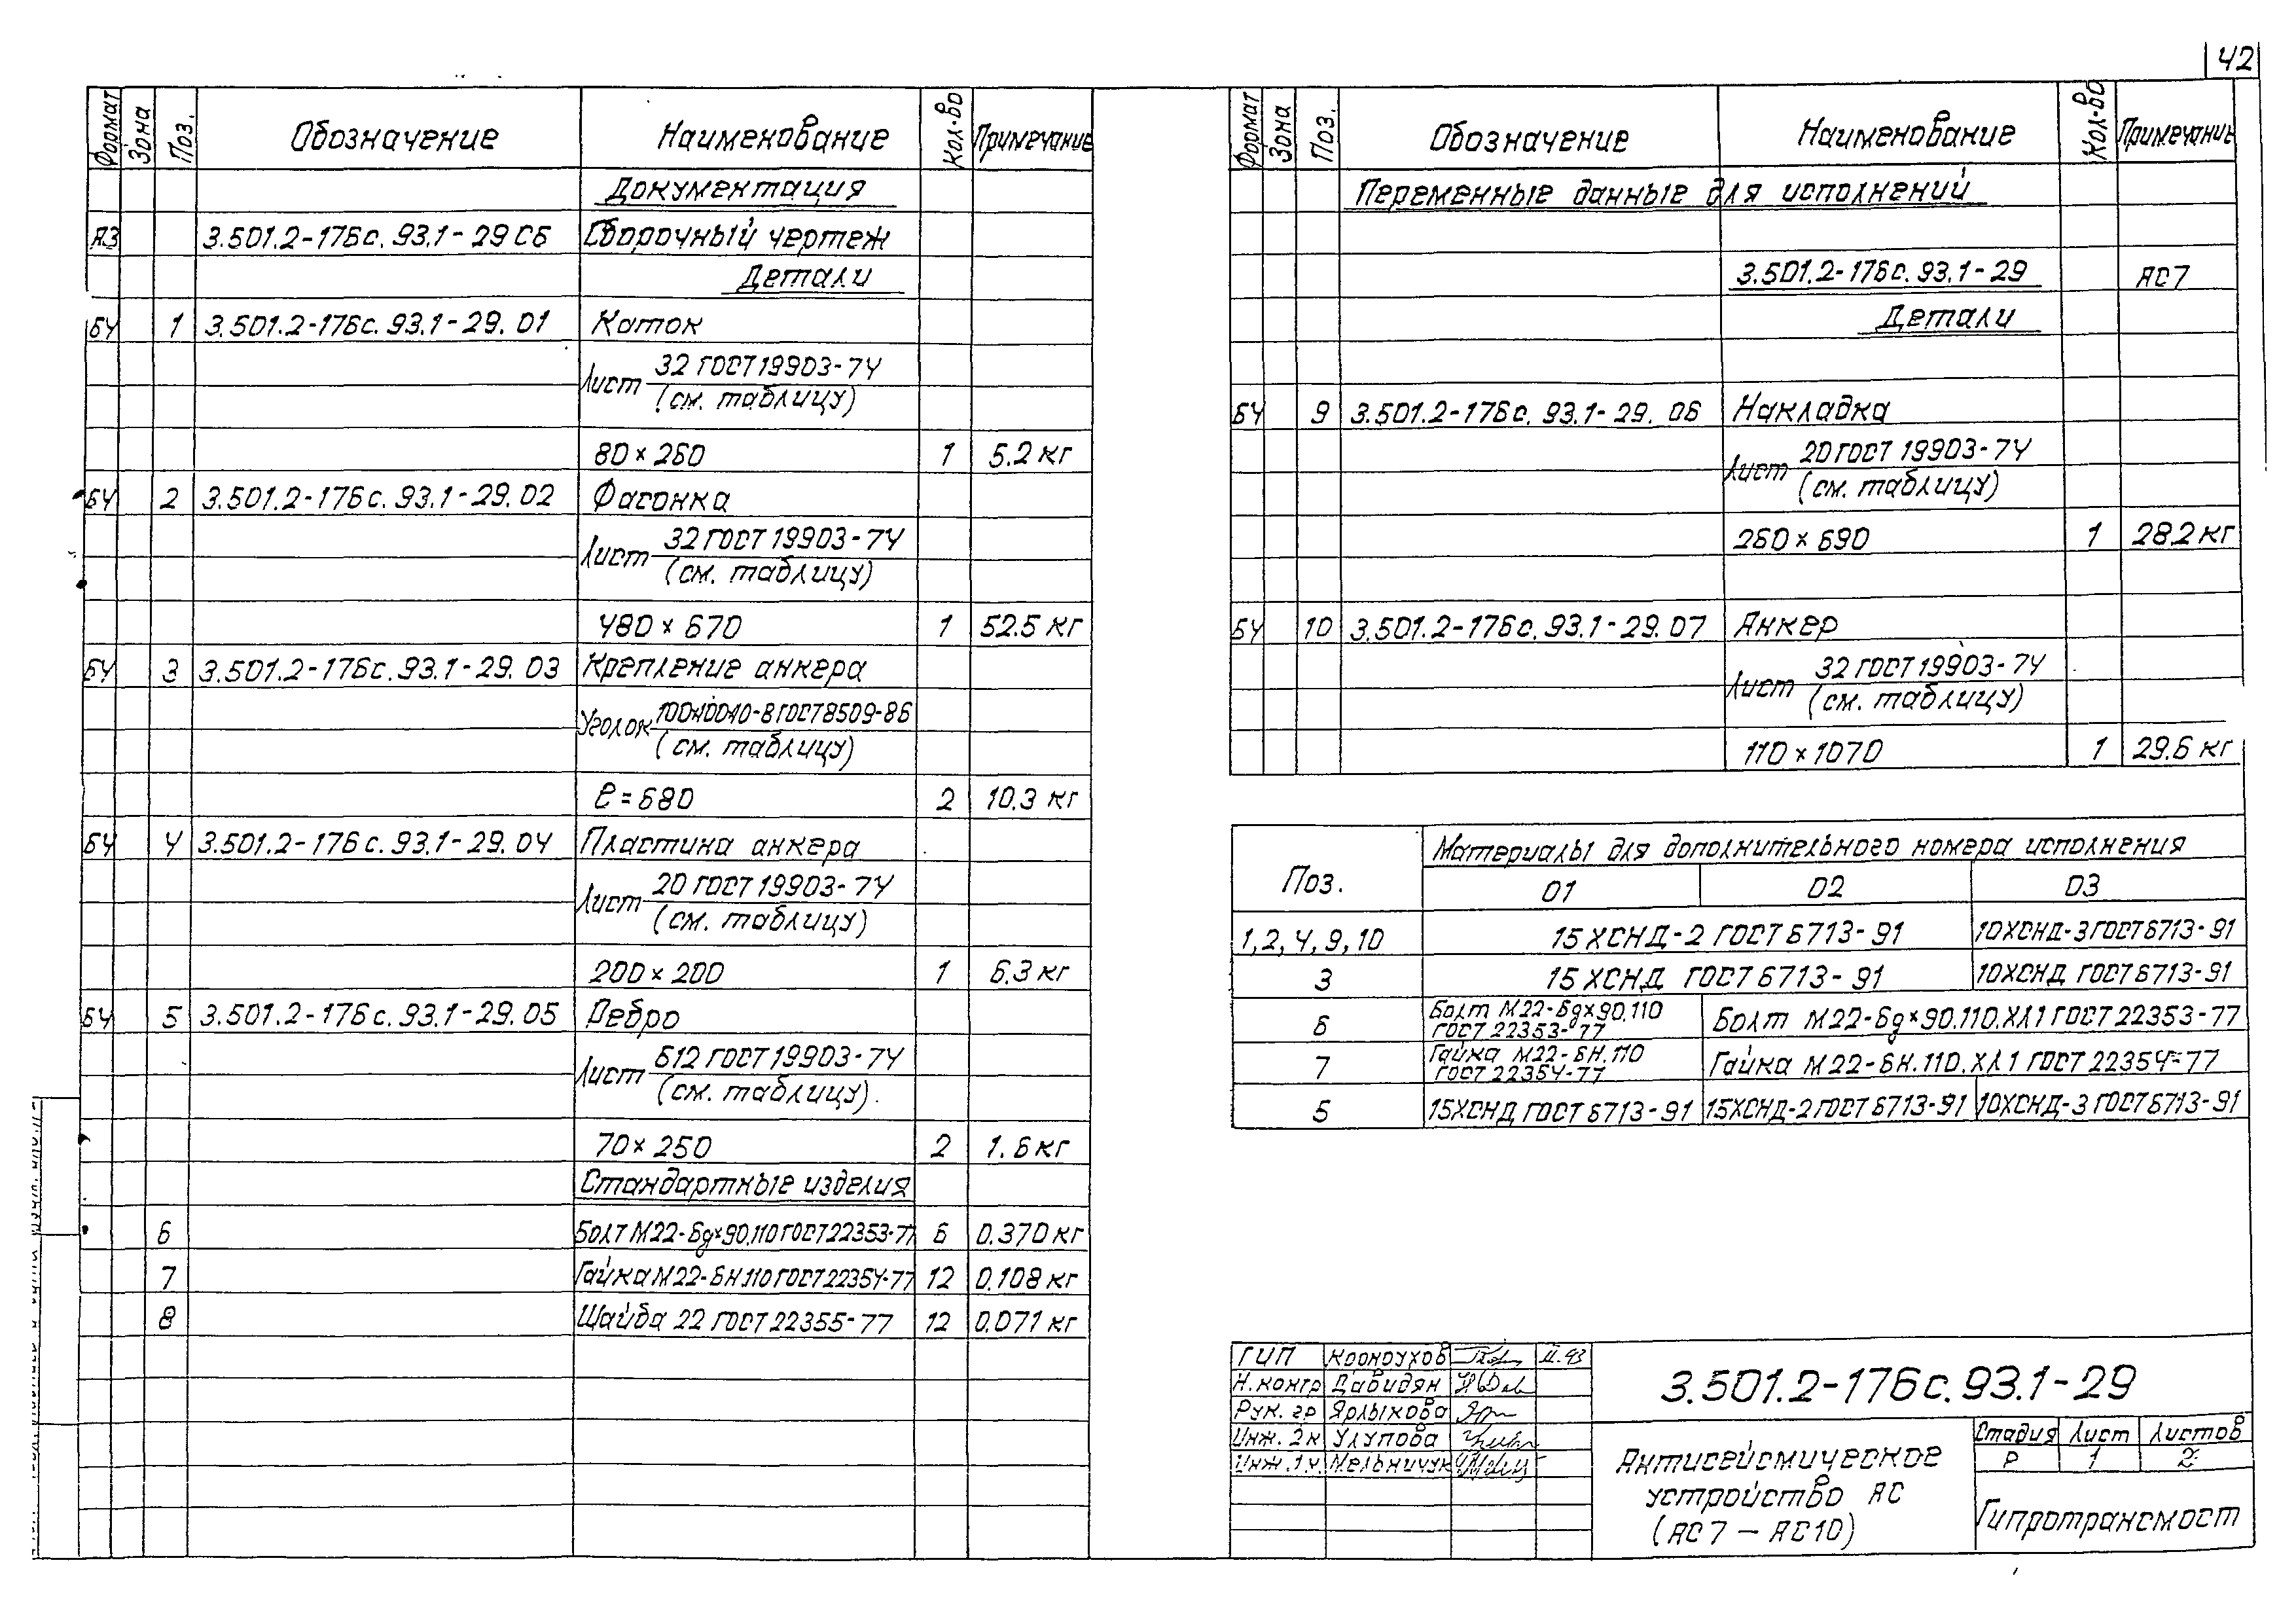 42
Формат Зона Поз. Обозначение Наименование Кол-во Примечание
Документация
А3 3.501.2-176с.93.1-29 СБ Сборочный чертеж
Детали
БЧ 1 3.501.2-176с.93.1-29.01 Каток
32 ГОСТ 19903-74
Лист
(см. таблицу)
80×260 1 5.2 кг
БЧ 2 3.501.2-176с.93.1-29.02 Фасонка
32 ГОСТ 19903-74
Лист
(см. таблицу)
480×670 1 52.5 кг
БЧ 3 3.501.2-176с.93.1-29.03 Крепление анкера
100×100×10-В ГОСТ 8509-86
Уголок
(см. таблицу)
ℓ=680 2 10.3 кг
БЧ 4 3.501.2-176с.93.1-29.04 Пластина анкера
20 ГОСТ 19903-74
Лист
(см. таблицу)
200×200 1 6.3 кг
БЧ 5 3.501.2-176с.93.1-29.05 Ребро
Б12 ГОСТ 19903-74
Лист
(см. таблицу).
70×250 2 1.6 кг
Стандартные изделия
6 Болт М22-6g×90.110 ГОСТ 22353-77 6 0.370 кг
7 Гайка М22-6Н.110 ГОСТ 22354-77 12 0.108 кг
8 Шайба 22 ГОСТ 22355-77 12 0.071 кг
Формат Зона Поз. Обозначение Наименование Кол-во Примечание
Переменные данные для исполнений
3.501.2-176с.93.1-29 АС7
Детали
БЧ 9 3.501.2-176с.93.1-29.06 Накладка
20 ГОСТ 19903-74
Лист
(см. таблицу)
260×690 1 28.2 кг
БЧ 10 3.501.2-176с.93.1-29.07 Анкер
32 ГОСТ 19903-74
Лист
(см. таблицу)
110×1070 1 29.6 кг
Поз. Материалы для дополнительного номера исполнения
01 02 03
1,2,4,9,10 15ХСНД-2 ГОСТ 6713-91 10ХСНД-3 ГОСТ 6713-91
3 15ХСНД ГОСТ 6713-91 10ХСНД ГОСТ 6713-91
6 Болт М22-6g×90.110
ГОСТ 22353-77 Болт М22-6g×90.110.ХЛ1 ГОСТ 22353-77
7 Гайка М22-6Н.110
ГОСТ 22354-77 Гайка М22-6Н.110.ХЛ1 ГОСТ 22354-77
5 15ХСНД ГОСТ 6713-91 15ХСНД-2 ГОСТ 6713-91 10ХСНД-3 ГОСТ 6713-91
ГИП II.93
Н.контр Давидян
Рук. гр Ярлыкова
Инж. 2к Улупова
Инж. 1к. Мельничук
3.501.2-176с.93.1-29
Антисейсмическое
устройство АС
(АС7 – АС10)
Стадия Лист Листов
Р 1 2
Гипротрансмост